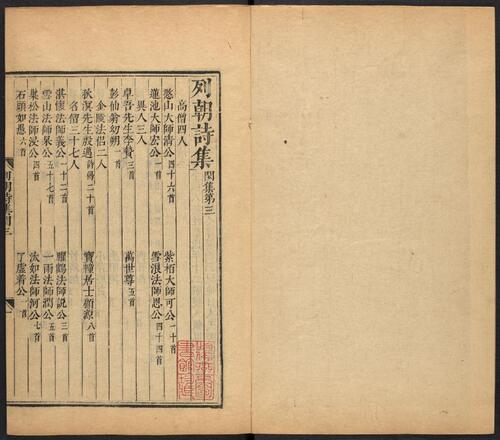 列朝詩集 閏集第三
高僧四人
憨山大師清公四十六首 紫柏大師可公一十首
蓮池大師宏公一首 雪浪法師恩公四十四首
異人三人
卓吾先生李贄三首 萬世尊五首
彭仙翁幼朔一首
金陵法侶二人
秋溟先生殷邁詩偈二十首 寶幢居士顧源八首
名僧三十七人
湛懷法師義公一十二首 臞鶴法師說公三首
雪山法師杲公五十七首 一雨法師潤公五首
巢松法師浸公四首 汰如法師河公七首
石頭如愚六首 了虛着公一首
列朝詩集閏三
一